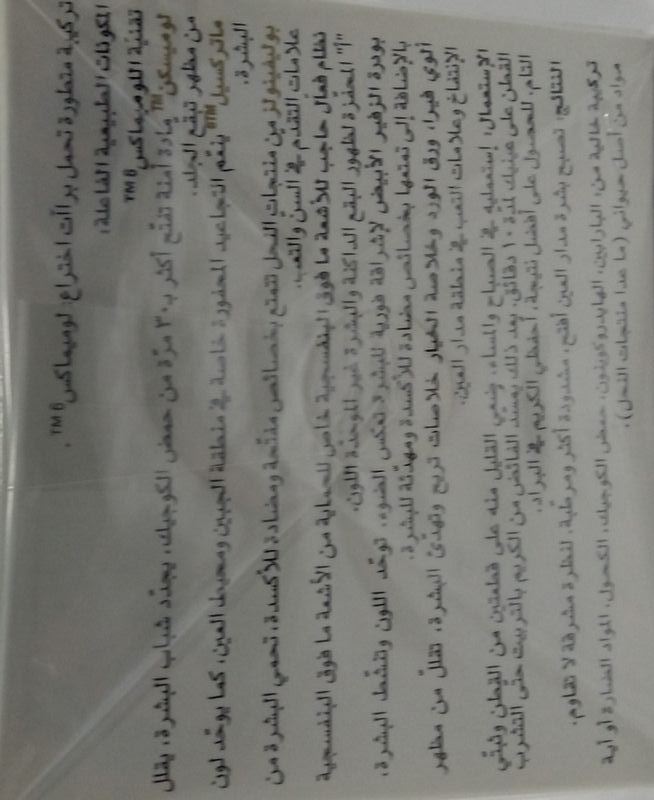 تركيبة متطورة تحمل براآت اختراع: لوميماكس TM 6.
المكونات الطبيعية الفاعلة:
تقنية اللوميماكس TM 6
لوميسكن TM مادة آمنة تفتح أكثر بـ ٣٠ مرة من حمض الكوجيك، يجدد شباب البشرة، يقلل
من مظهر تبقع الجلد.
ماتركسيل TM ينعّم التجاعيد المحفورة خاصة في منطقة الجبين ومحيط العين، كما يوحّد لون
البشرة.
بوليفينولز من منتجات النحل تتمتع بخصائص مفتّحة ومضادة للأكسدة، تحمي البشرة من
علامات التقدم في السن والتعب.
نظام فعال حاجب للأشعة ما فوق البنفسجية خاص للحماية من الأشعة ما فوق البنفسجية
"أ" المحفزة لظهور البقع الداكنة والبشرة غير الموحّدة اللون.
بودرة الزفير الأبيض لإشراقة فورية للبشرة تعكس الضوء، توحّد اللون وتنشّط البشرة،
بالإضافة إلى تمتعها بخصائص مضادة للأكسدة ومهدئة للبشرة.
ألوي فيرا، ورق الورد وخلاصة الخيار خلاصات تريح وتهدئ البشرة، تقلل من مظهر
الإنتفاخ وعلامات التعب في منطقة مدار العين.
الإستعمال: إستعمليه في الصباح والمساء. ضعي القليل منه على قطعتين من القطن وثبّتي
القطن على عينيك لمدة ١٠ دقائق. بعد ذلك يمسد الفائض من الكريم بالتربيت حتى التشرب
التام. للحصول على أفضل نتيجة، أحفظي الكريم في البراد.
النتائج: تصبح بشرة مدار العين أفتح، مشدودة أكثر ومرطبة، لنظرة مشرقة لا تقاوم.
تركيبة خالية من: البارابين، الهايدروكوينون، حمض الكوجيك، الكحول، المواد الضارة أو اية
مواد من أصل حيواني (ما عدا منتجات النحل).